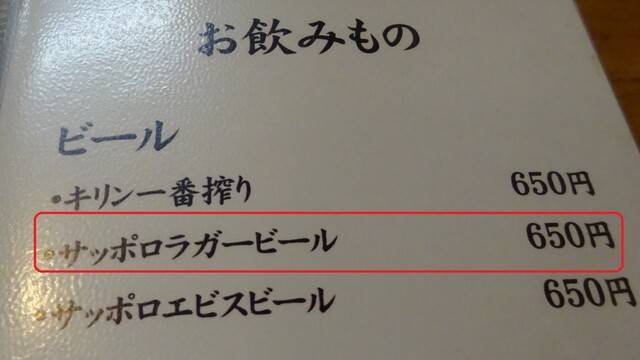 お飲みもの
ビール
•キリン一番搾り 650円
•サッポロラガービール 650円
•サッポロエビスビール 650円